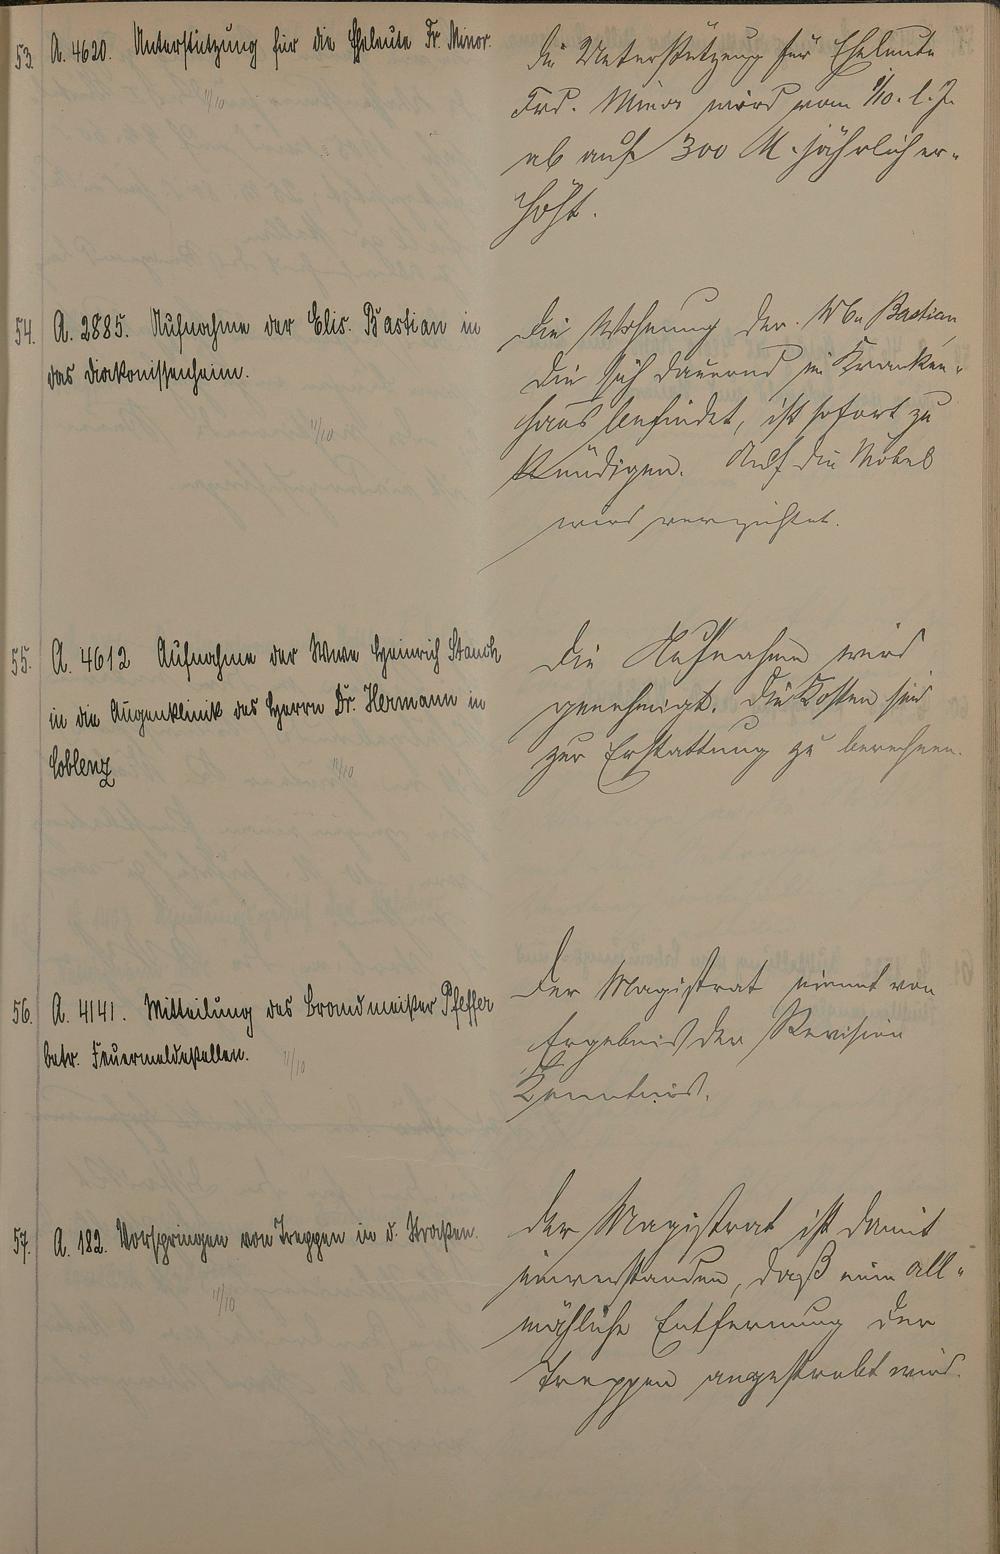 53. A. 4620. Unterstützung für die Eheleute Fr. Minor.
11/10
Die Unterstützung für Eheleute
Frd. Minor wird vom 1/10. l. J.
ab auf 300 M. jährlich er-
höht.
54. A. 2885. Aufnahme der Elis. Bastian in
das Diakonissenheim.
11/10
Die Wohnung der Ww. Bastian,
die sich dauernd im Kranken-
haus befindet, ist sofort zu
kündigen. Auf die Möbel
wird verzichtet.
55. A. 4612 Aufnahme der Wwe Heinrich Stauch
in die Augenklinik des Herrn Dr. Hermann in
Coblenz
11/10
Die Aufnahme wird
genehmigt. Die Kosten sind
zur Erstattung zu berechnen.
56. A. 4141. Mitteilung des Brandmeister Pfeffer
betr. Feuermeldestellen.
11/10
Der Magistrat nimmt von
Ergebnis der Revision
Kenntnis.
57. A. 182. Vorspringen von Treppen in d. Straßen.
11/10
Der Magistrat ist damit
einverstanden, daß eine all-
mähliche Entfernung der
Treppen angestrebt wird.